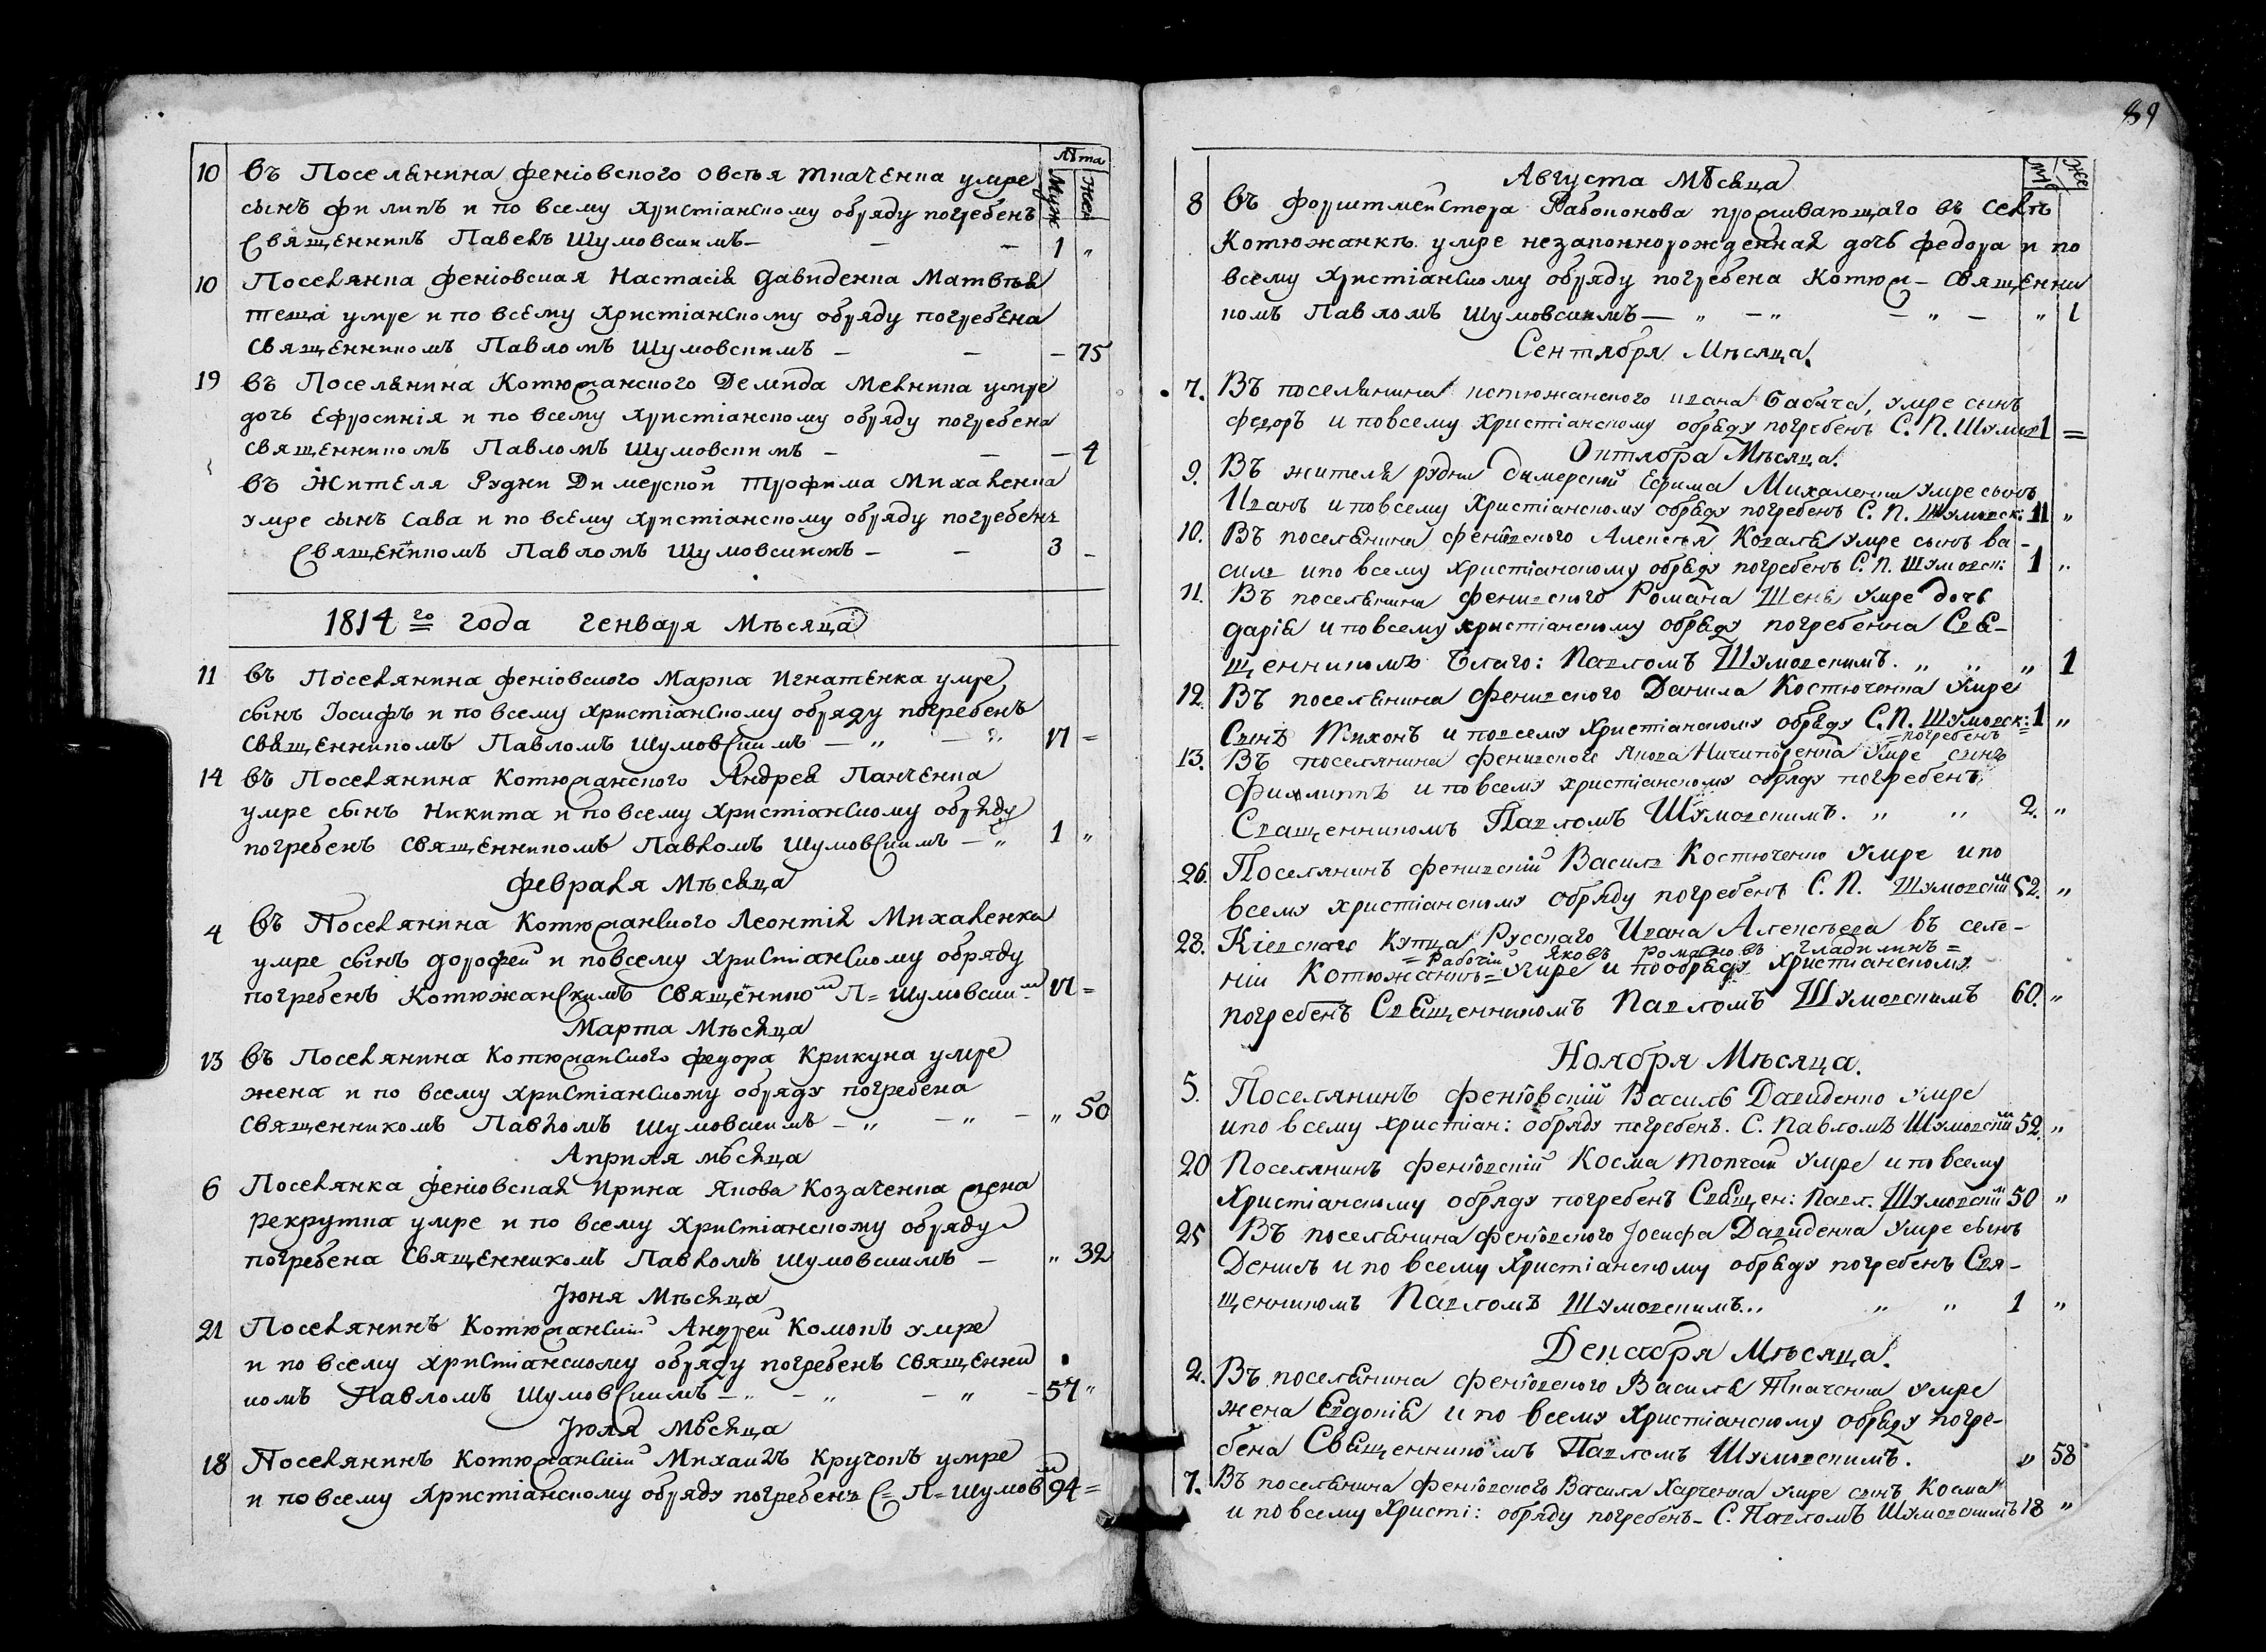 Лѣта
Муж Жен
10 въ Поселянина феніовского овсѣя ткаченка умре
сынъ филипъ и по всему христіанскому обряду погребенъ
Священникъ Павелъ Шумовскимъ — — — 1 „
10 Поселянка феніовская Настасія Давиденка Матвѣя
теща умре и по всему христіанскому обряду погребена
священникомъ Павломъ Шумовскимъ — — — 75
19 въ Поселянина Котюжанского Демида Мелника умре
дочь Ефросинія и по всему христіанскому обряду погребена
священникомъ Павломъ Шумовскимъ — — — 4
въ Жителя Рудни Димерской Трофима Михаленка
умре сынъ Сава и по всему христіанскому обряду погребенъ
Священникомъ Павломъ Шумовскимъ — — 3 —
1814го года генваря Мѣсяца
11 въ Поселянина феніовского Марка Игнатенка умре
сынъ Іосифъ и по всему христіанскому обряду погребенъ
священникомъ Павломъ Шумовскимъ — „ — „ VI =
14 въ Поселянина Котюжанского Андрея Панченка
умре сынъ Никита и по всему христіанскому обряду
погребенъ священникомъ Павломъ Шумовскимъ — „ 1 „
февраля Мѣсяца
4 въ Поселянина Котюжанского Леонтія Михаленка
умре сынъ дорофей и по всему христіанскому обряду
погребенъ Котюжанскимъ священником П= Шумовским VI =
Марта Мѣсяца
13 въ Поселянина Котюжанского федора Крикуна умре
жена и по всему христіанскому обряду погребена
священникомъ Павломъ Шумовскимъ — „ — „ — „ 50
Априля мѣсяца
6 Поселянка феніовская Ирина Якова Козаченка жена
рекрутка умре и по всему христіанскому обряду
погребена священникомъ Павломъ Шумовскимъ — „ 32
Іюня Мѣсяца
21 Поселянинъ Котюжанскій Андрей Комокъ умре
и по всему христіанскому обряду погребенъ священни
комъ Павломъ Шумовскимъ — „ — „ — „ — 57 „
Іюля Мѣсяца
18 Поселянинъ Котюжанскій Михаилъ Кручокъ умре
и по всему христіанскому обряду погребенъ С= П= Шумовм 94 =
89
Му Же
Августа Мѣсяца
8 въ форштмейстера Рабоконова проживающаго въ селѣ
Котюжанкѣ умре незаконнорожденная дочь федора и по
всему христіанскому обряду погребена Котюж— священни
комъ Павломъ Шумовскимъ — „ — „ — „ — „ 1
Сентября Мѣсяца.
7. Въ поселянина котюжанского ивана бабича, умре сынъ
федоръ и по всему христіанскому обряду погребенъ С. П. Шумов 1 =
Октября Мѣсяца.
9. Въ жителя рудни димерской Ефима Михаленка умре сынъ
Иванъ и по всему христіанскому обряду погребенъ С. П. Шумовск: 11 „
10. Въ поселянина феніовского Алексѣя Коваля умре сынъ ва-
силь и по всему христіанскому обряду погребенъ С. П. Шумовск: 1 „
11. Въ поселянина фениовского Романа Шеня умре дочь
дарія и по всему христіанскому обряду погребенна Свя-
щенникомъ благо: Павломъ Шумовскимъ. „ „ „ 1
12. Въ поселянина фениовского Данила Костюченка умре
Сынъ Тихонъ и по всему христіанскому обряду С. П. Шумовск: 1 „
=погребенъ=
13. Въ поселянина фениовского якова Ничипоренка умре сынъ
Филиппъ и по всему христіанскому обряду погребенъ
Священникомъ Павломъ Шумовскимъ. „ „ 2. „
26. Поселянинъ фениовскій Василь Костюченко умре и по
всему христіанскому обряду погребенъ С. П. Шумовскім 52. „
28. Кіевского купца Русскаго Ивана Алексѣева въ селе-
=рабочій Яковъ Романовъ Гладилинъ=
ніи Котюжанкѣ= умре и по обряду христіанскому
погребенъ Священникомъ Павломъ Шумовскимъ 60. „
Ноября Мѣсяца.
5. Поселянинъ феніовскій Василь Давиденко умре
и по всему христіан: обряду погребенъ. С. Павломъ Шумовскім 52. „
20 Поселянинъ феніовскій Косма топчай умре и по всему
христіанскому обряду погребенъ Священ: Павл. Шумовскім 50 „
25 Въ поселянина феніовского Іосифа Давиденка умре сынъ
Денисъ и по всему христіанскому обряду погребенъ Свя-
щенникомъ Павломъ Шумовскимъ.. „ „ 1 „
Декабря Мѣсяца.
2. Въ поселянина феніовского Василя Ткаченка умре
жена Евдокія и по всему христіанскому обряду погре-
бена Священникомъ Павломъ Шумовскимъ. „ 58
7. Въ поселянина феніовского Василя Харченка умре сынъ Косма
и по всему Христі: обряду погребенъ— С. Павломъ Шумовскимъ 18 „